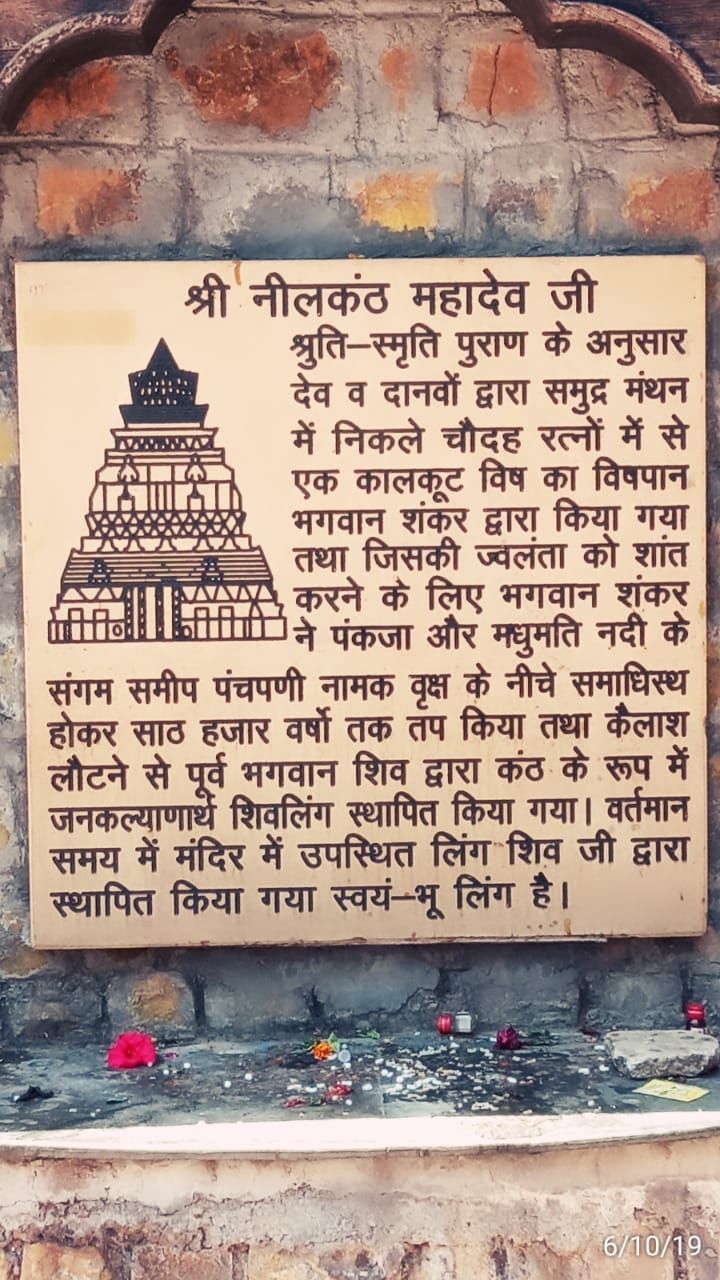 श्री नीलकंठ महादेव जी
श्रुति–स्मृति पुराण के अनुसार
देव व दानवों द्वारा समुद्र मंथन
में निकले चौदह रत्नों में से
एक कालकूट विष का विषपान
भगवान शंकर द्वारा किया गया
तथा जिसकी ज्वलंता को शांत
करने के लिए भगवान शंकर
ने पंकजा और मधुमति नदी के
संगम समीप पंचपणी नामक वृक्ष के नीचे समाधिस्थ
होकर साठ हजार वर्षो तक तप किया तथा कैलाश
लौटने से पूर्व भगवान शिव द्वारा कंठ के रूप में
जनकल्याणार्थ शिवलिंग स्थापित किया गया। वर्तमान
समय में मंदिर में उपस्थित लिंग शिव जी द्वारा
स्थापित किया गया स्वयं–भू लिंग है।
6/10/19